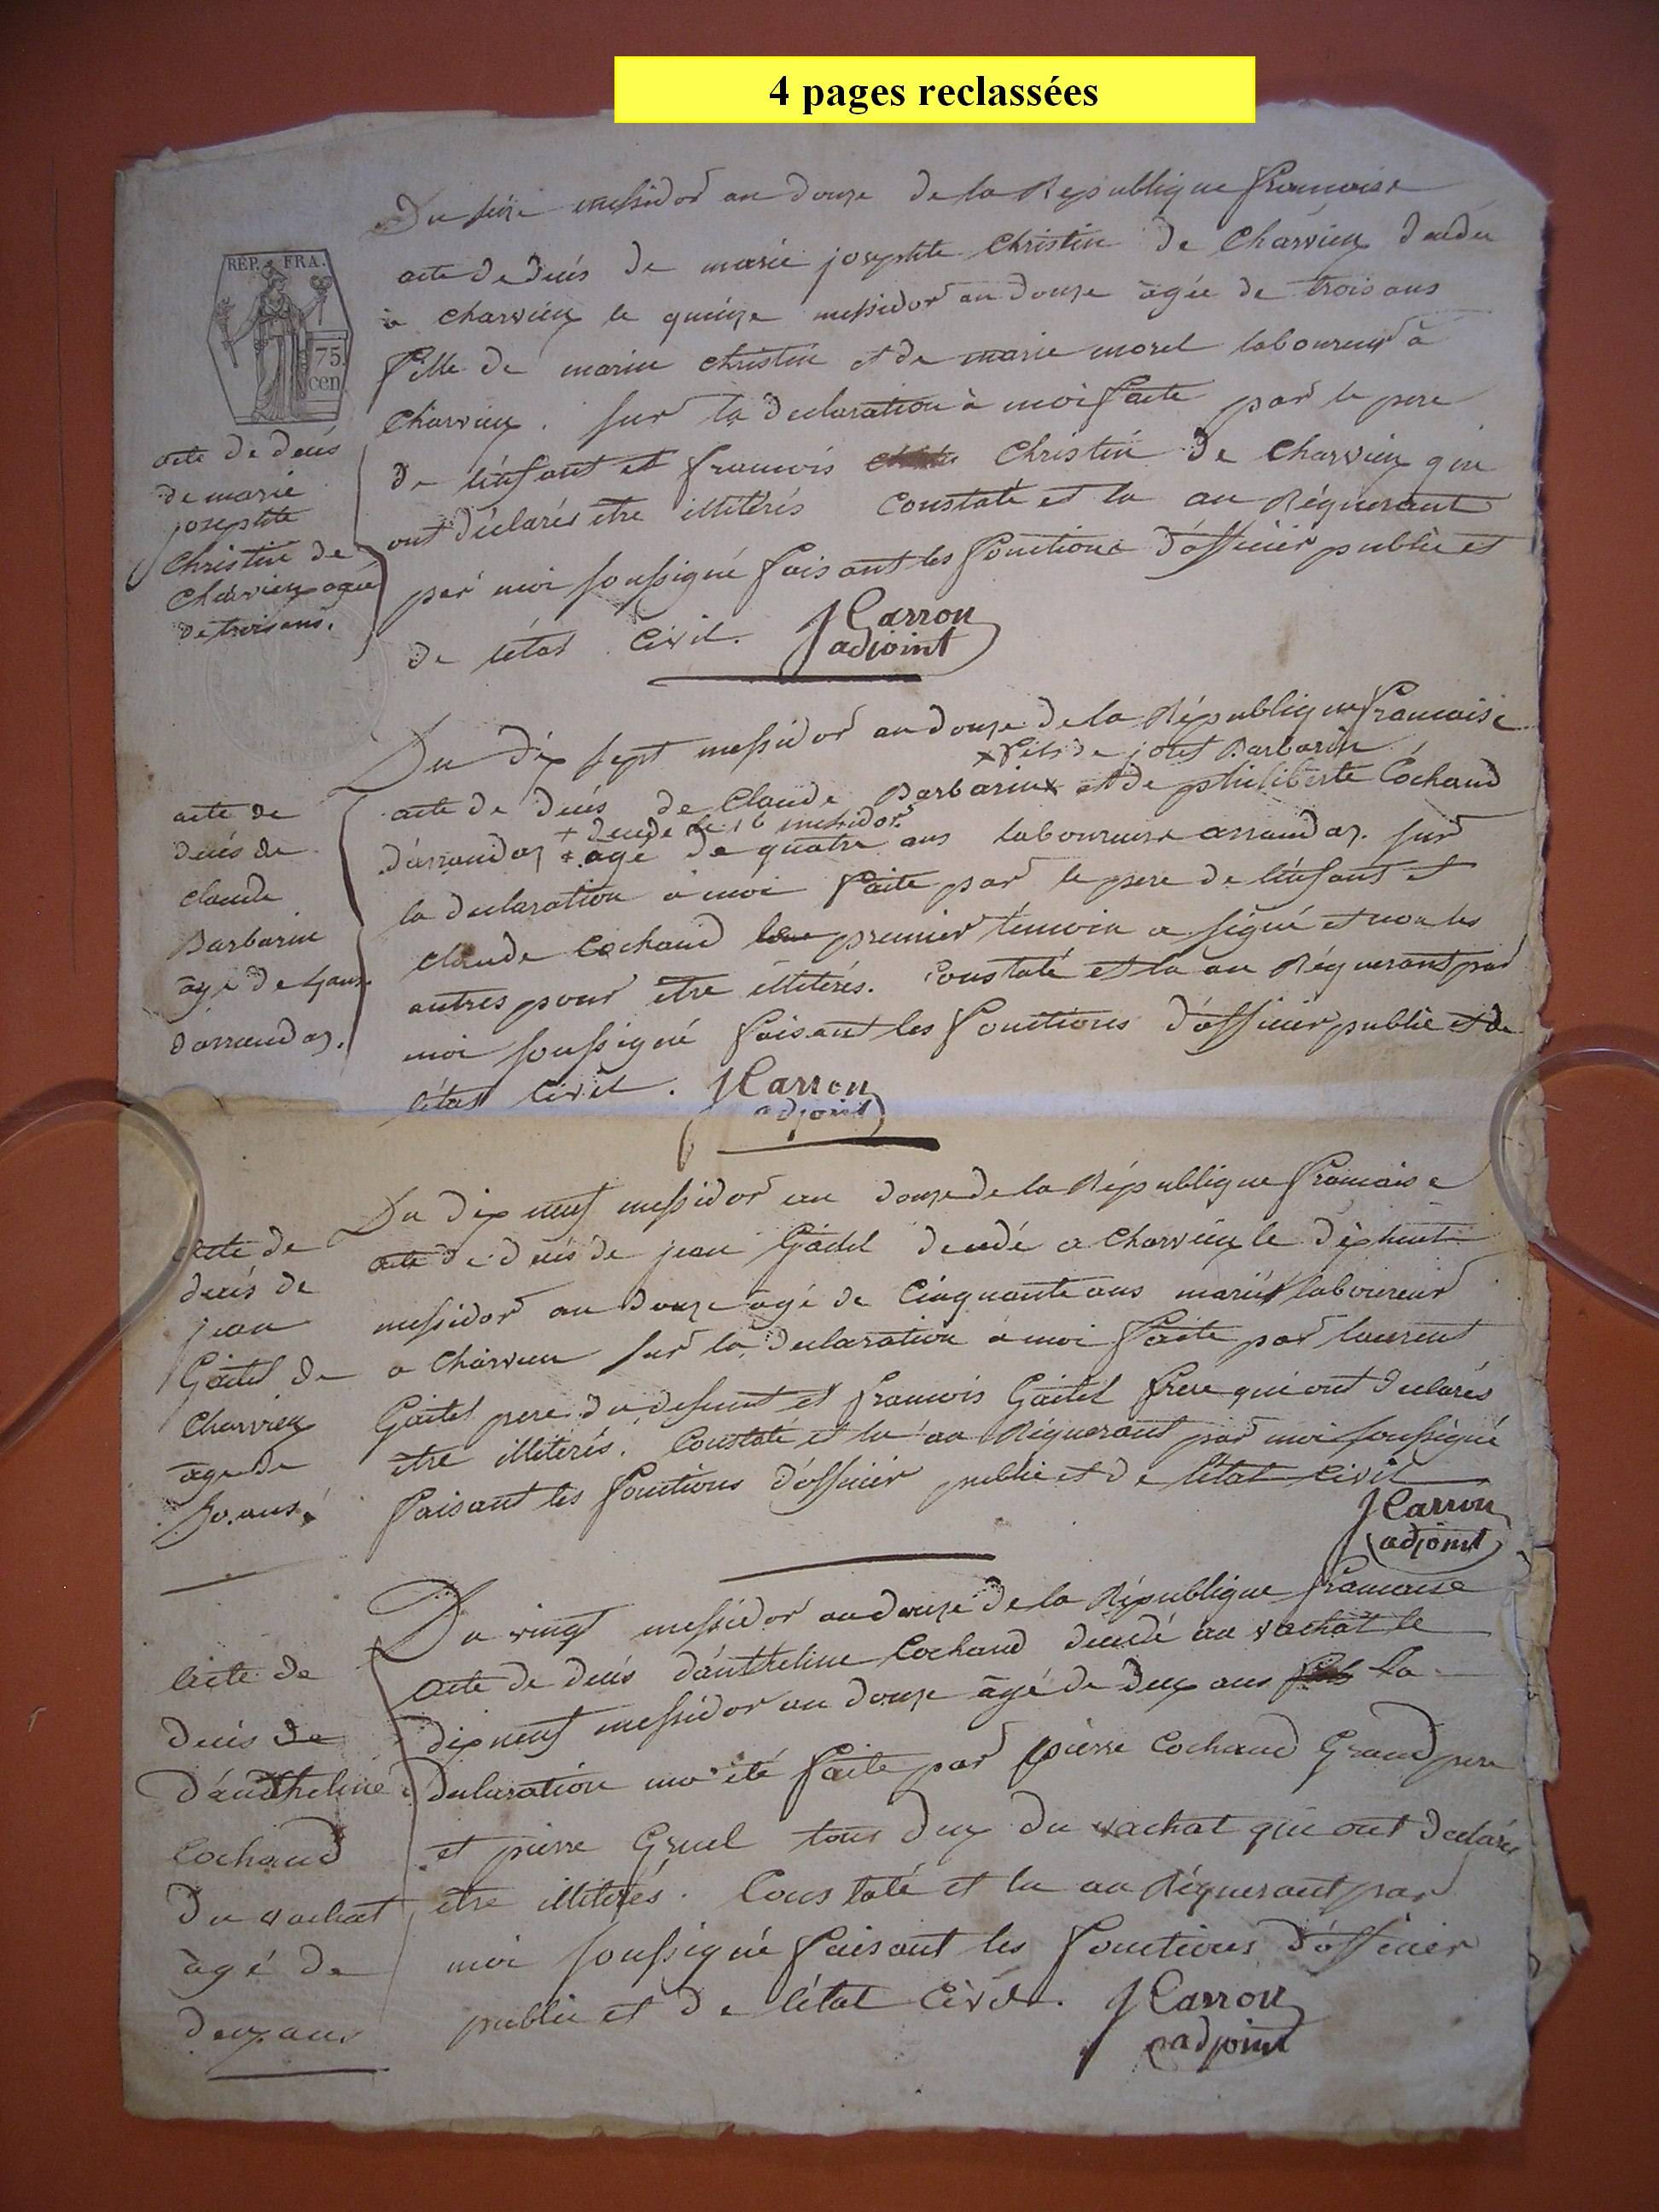 4 pages reclassées
REP. FRA.
75
cen
Du seize messidor an douze de la Republique francaise
acte de deces de marie josephte Christin de Charvieux decedée
a charvieux le quinze messidor an douze agée de trois ans
fille de marin christin et de marie morel laboureur à
Charvieux. Sur la declaration à moi faite par le pere
de l'enfant et francois Christin de Charvieux qui
ont déclarés etre illitérés Constaté et lu au Réquerant
par moi soussigné faisant les fonctions d'officier public et
de l'état Civil. JCarron
adjoint
acte de decés
de marie
josephte
Christin de
Charvieux agée
de trois ans.
Du dix sept messidor an douze de la République francaise
x fils de josef Barbarin
acte de decés de Claude Barbarin x et de philiberte Cochand
+ decedé le 16 messidor
d'arrandas + agé de quatre ans laboureurs arrandas. Sur
la declaration a moi faite par le pere de l'enfant et
Claude Cochand premier témoin a signé et non les
autres pour etre illiterés. Constaté et lu au Réquerant par
moi soussigné faisant les fonctions d'officier public et de
l'état Civil. JCarron
adjoint
acte de
decés de
claude
Barbarin
agé de 4 ans
d'arrandas.
Du dix neuf messidor an douze de la République francaise
acte de decés de jean Gaitet decedé a Charvieux le dix huit
messidor an douze agé de Cinquante ans marié laboureur
a Charvieux sur la declaration a moi faite par laurent
Gaitet pere du defunt et francois Gaitet frere qui ont declarés
etre illiterés. Constaté et lu au Réquerant par moi soussigné
faisant les fonctions d'officier public et de l'état civil
JCarron
adjoint
acte de
decés de
jean
Gaitet de
Charvieux
age de
50 ans.
Du vingt messidor an douze de la République francaise
acte de decés d'antheline Cochand decedé au vachat le
dix neuf messidor an douze agé de deux ans la
declaration m'a été faite par pierre Cochand Grand pere
et pierre Gruel tous deux du vachat qui ont declarés
etre illiterés. Constaté et lu au Réquerant par
moi soussigné faisant les fonctions d'officier
public et de l'état Civil. JCarron
adjoint
acte de
decés de
d'antheline
Cochand
du vachat
agé de
deux ans